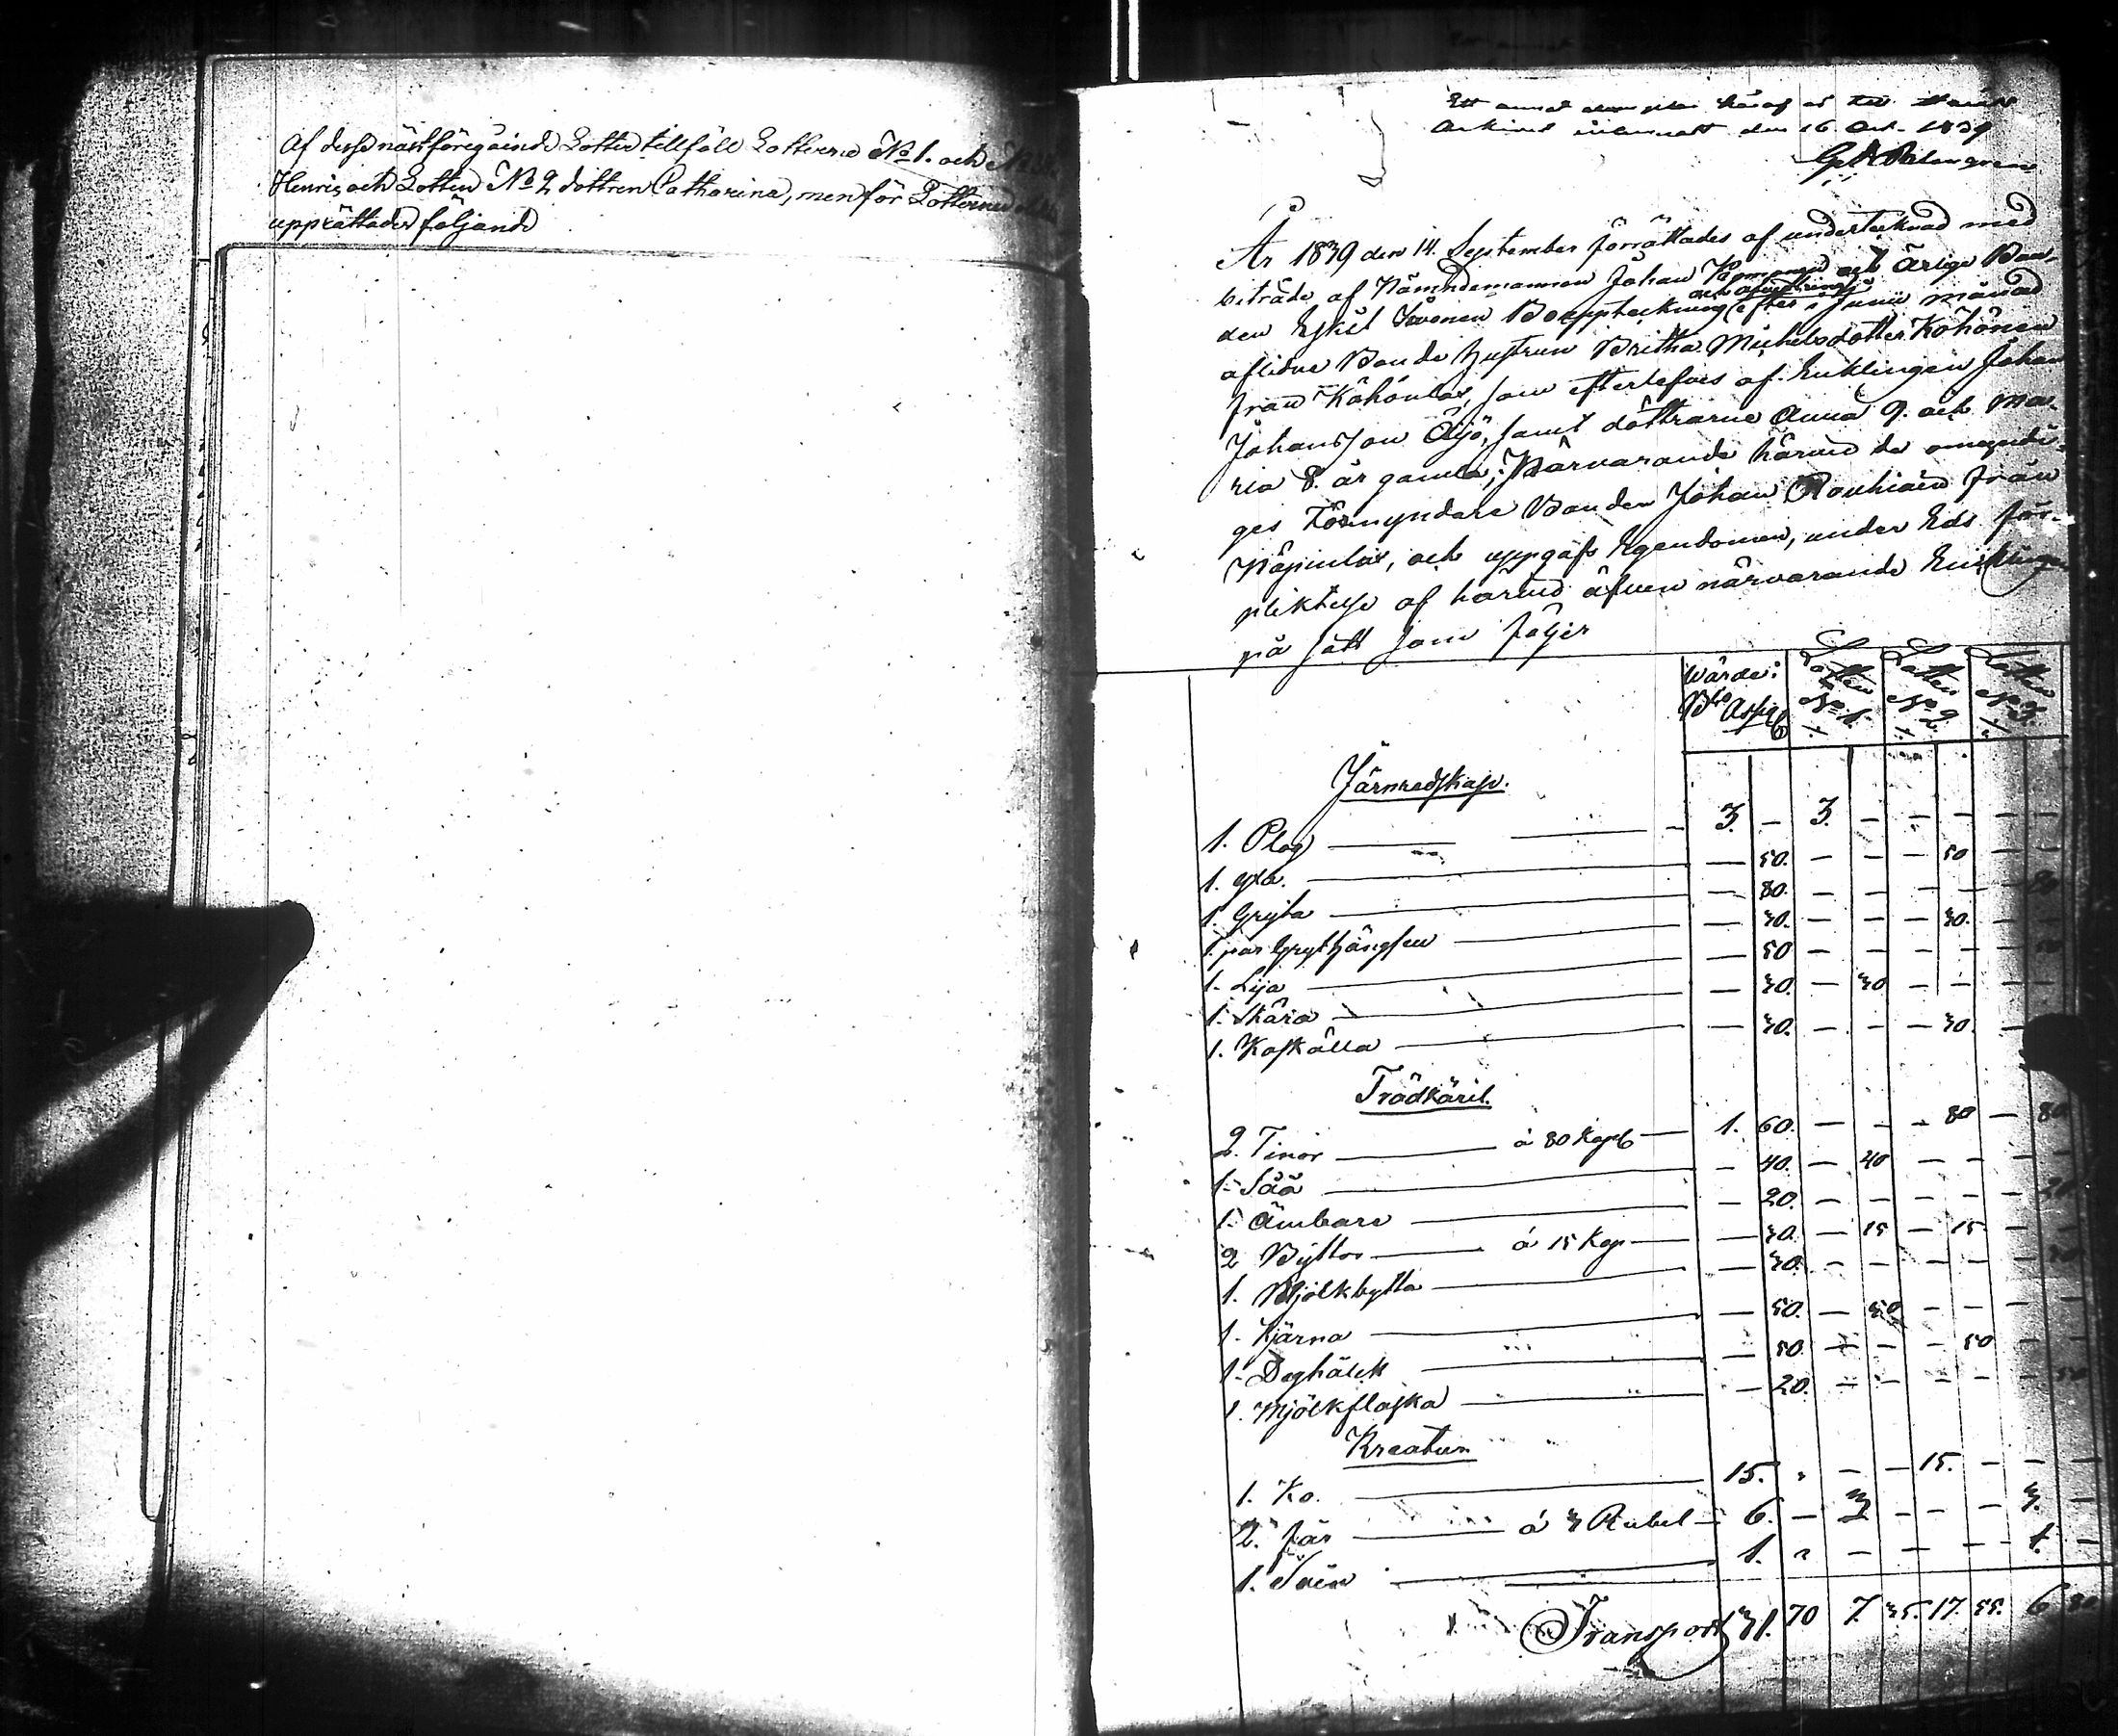 Af desse nästföregående Lotter tillföll Lotterne No 1. och
Henric, och Lotten No 2 dottren Catharina, men för Lotterne
upprättades följande
Ett annat exemplar häraf är till Härads
Arkivet inlemnatt den 16. Oct. 1839
År 1839 den 14. September förrättades af undertecknad med
biträde af Nämndemannen Johan och Ärlige Bon-
och afvittring
den Eskil Iivonen Bouppteckning efter i Junii månad
aflidne Bonde hustrun Britha Michelsdotter Köhönen
från Köhönlax, som efterlefves af Enklingen Johan
Johansson Öljö, samt döttrarne Anna 9. och Ma-
ria 8. år gamla; Närvarande härvid de omyndi-
ges Förmyndare Bonden Johan Rouhiain från
och uppgafs Egendomen, under Eds för-
pliktelse af härvid äfven närvarande Enklingen
på sätt som följer
Wärde: Lotten Lotten Lotten
Bco Ass. No 1. No 2. No 3.
Järnredskap.
1. Plog — 3. — 3. — — — — —
1. yxa. — — 50. — — — 50 — —
1. Gryta — — 80. — — — — — 80
1. par Grythängslen — — 30. — — — 30. — —
1. Lija — — 50 — — — — — 50
1. Skära — — 30. — 30 — — — —
1. Koskälla — — 30. — — — 30. —
Trädkäril.
2. Tinor — à 80 Kop — 1. 60. — — — 80 — 80
1. Såå — — 40. — 40 — — — —
1. Ämbare — — 20. — — — — — 20
2 Byttor — à 15 Kop — — 30. — 15 — 15 — —
1. Mjölkbytta — — 30. — — — — — 30
1. Kjärna — — 50. — 50 — — — —
1. Deghålck — — 50. — — — 50 —
1. Mjölkflaska — — 20. — — — — —
Kreatur
1. Ko. — 15. — — 15. — — —
2. får — à 3 Rubel — 6. — 3 — — — 3. —
1. — 1. — — — — 1. —
Transport 31. 70 7. 35. 17. 55. 6 80